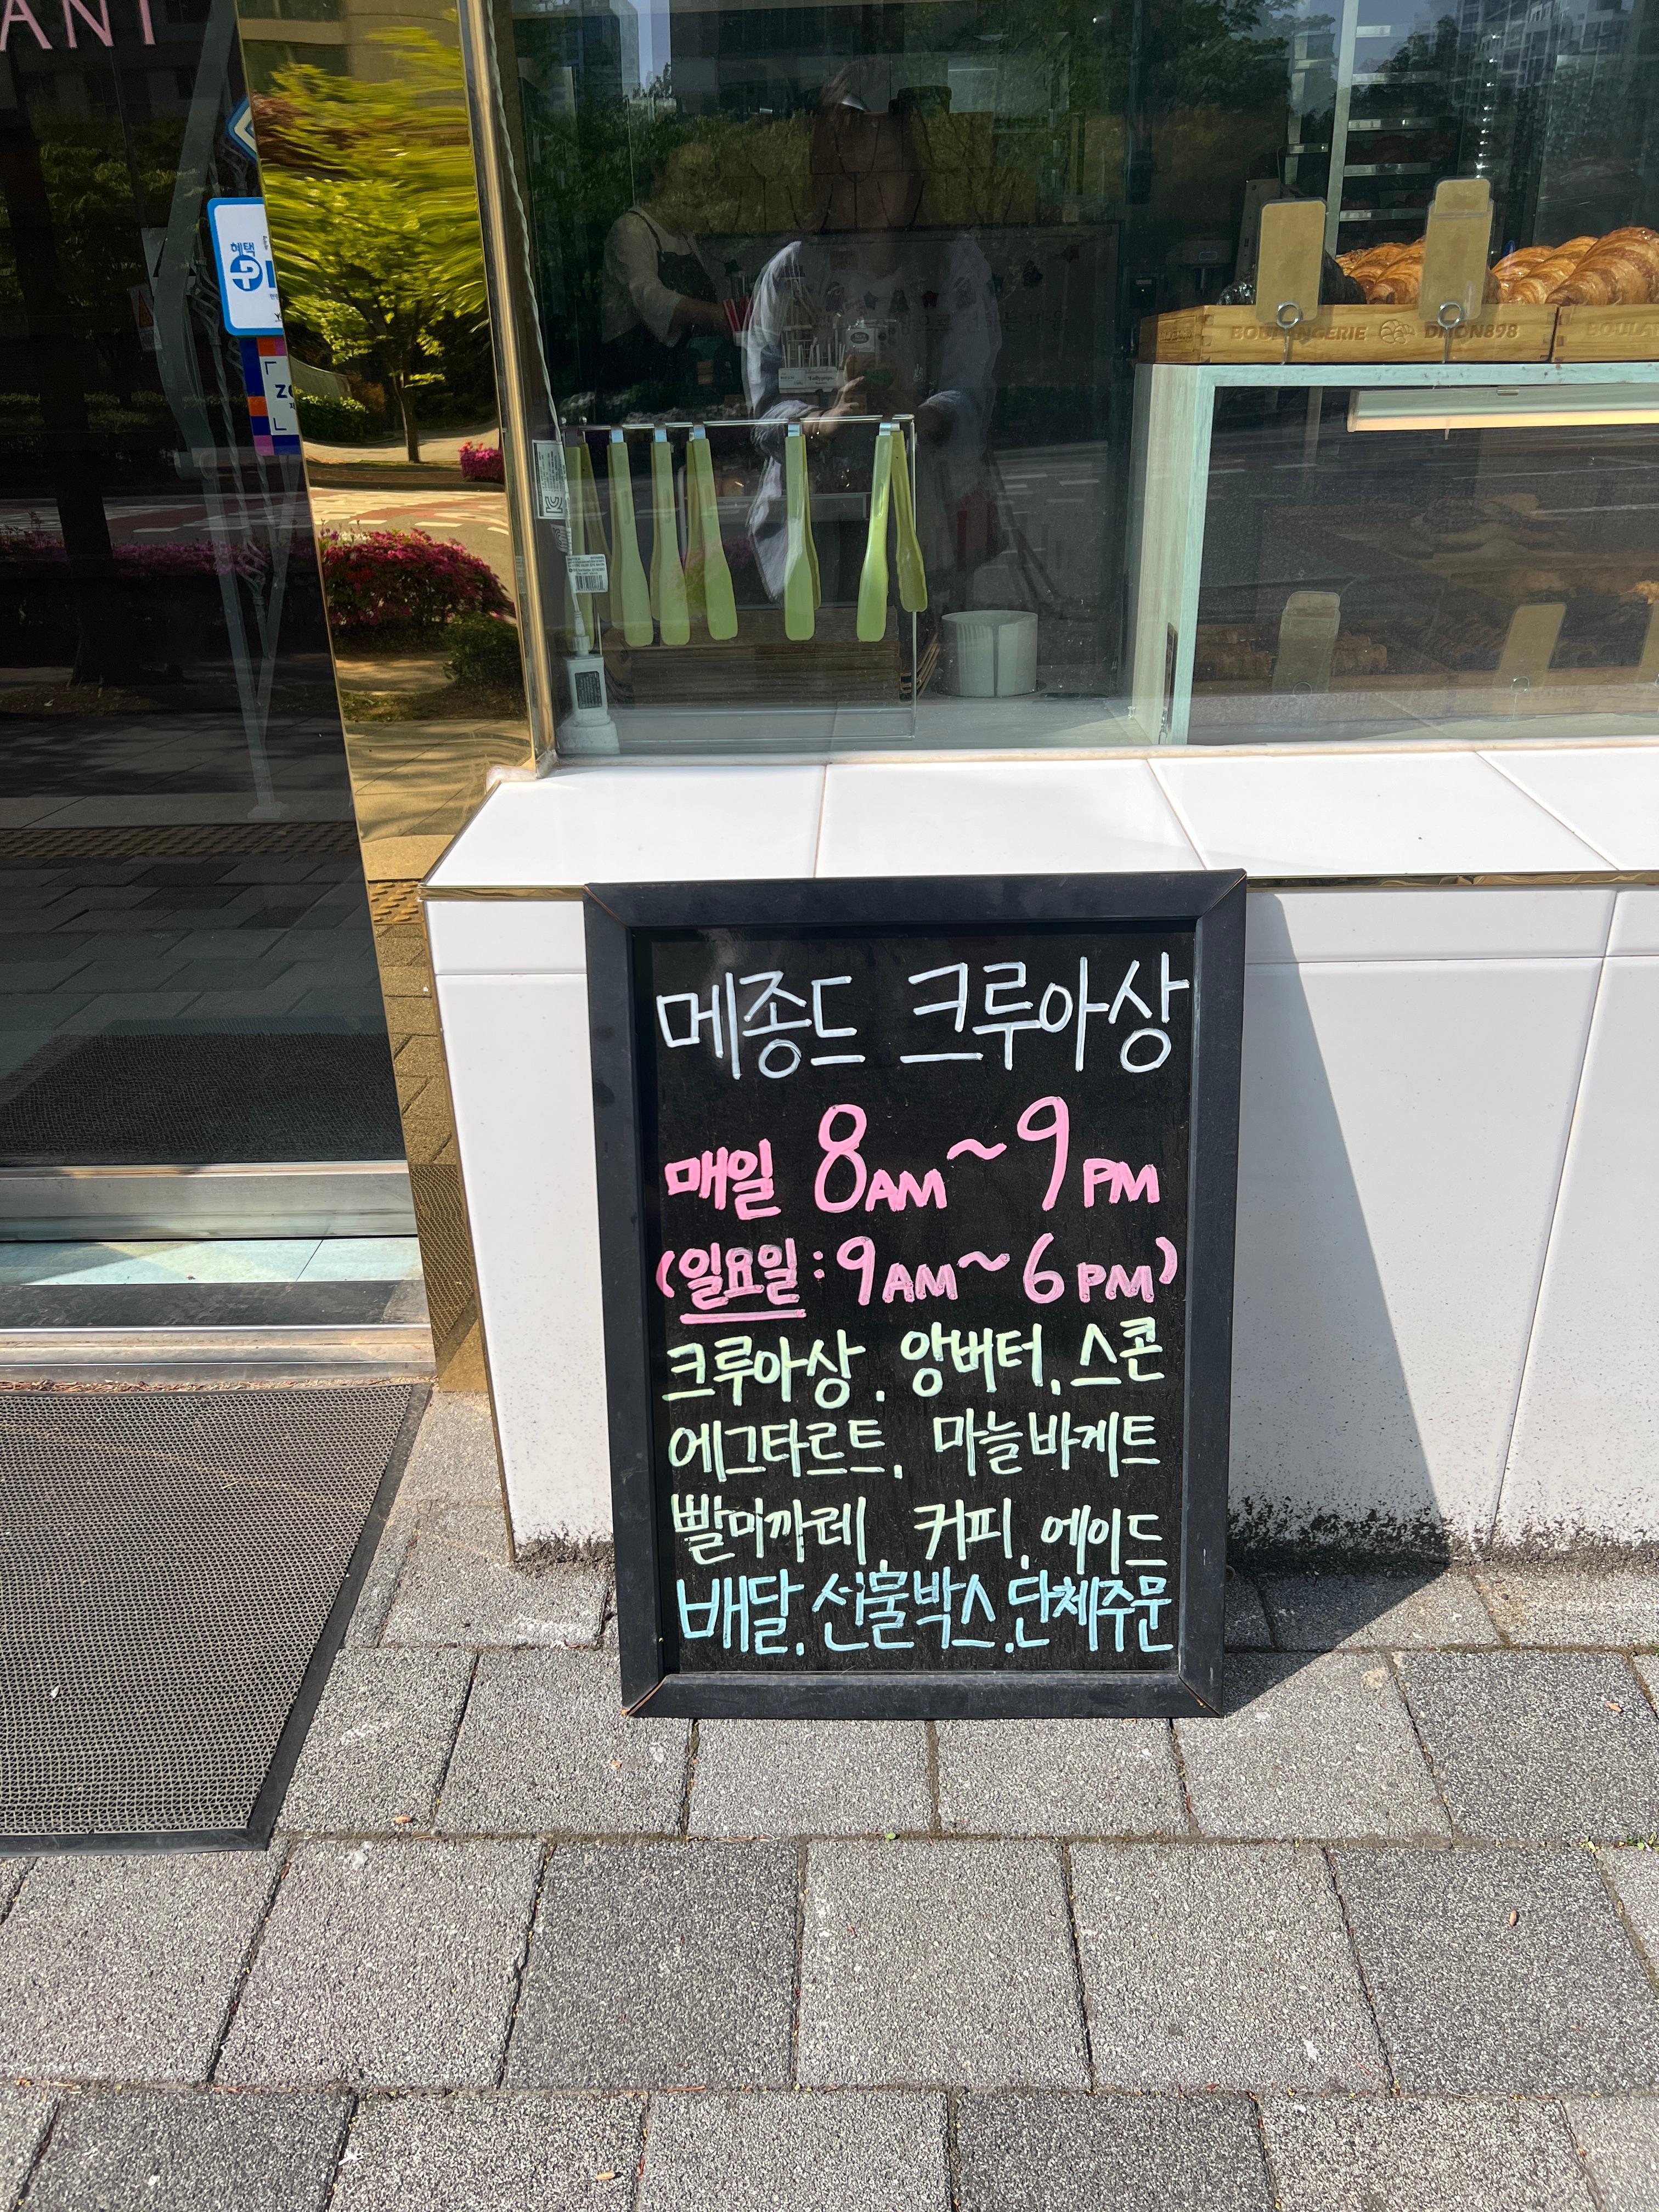 ANT
혜택
BOULANGERIE DIJON898
메종드 크루아상
매일 8AM~9PM
(일요일:9AM~6PM)
크루아상, 앙버터, 스콘
에그타르트, 마늘바게트
빨미까레, 커피, 에이드
배달, 선물박스, 단체주문